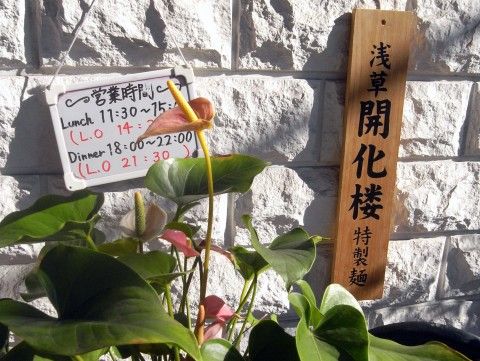 営業時間
Lunch 11:30~15:
(L.O 14:
Dinner 18:00~22:00
(L.O 21:30 )
浅草
開化楼
特製麺